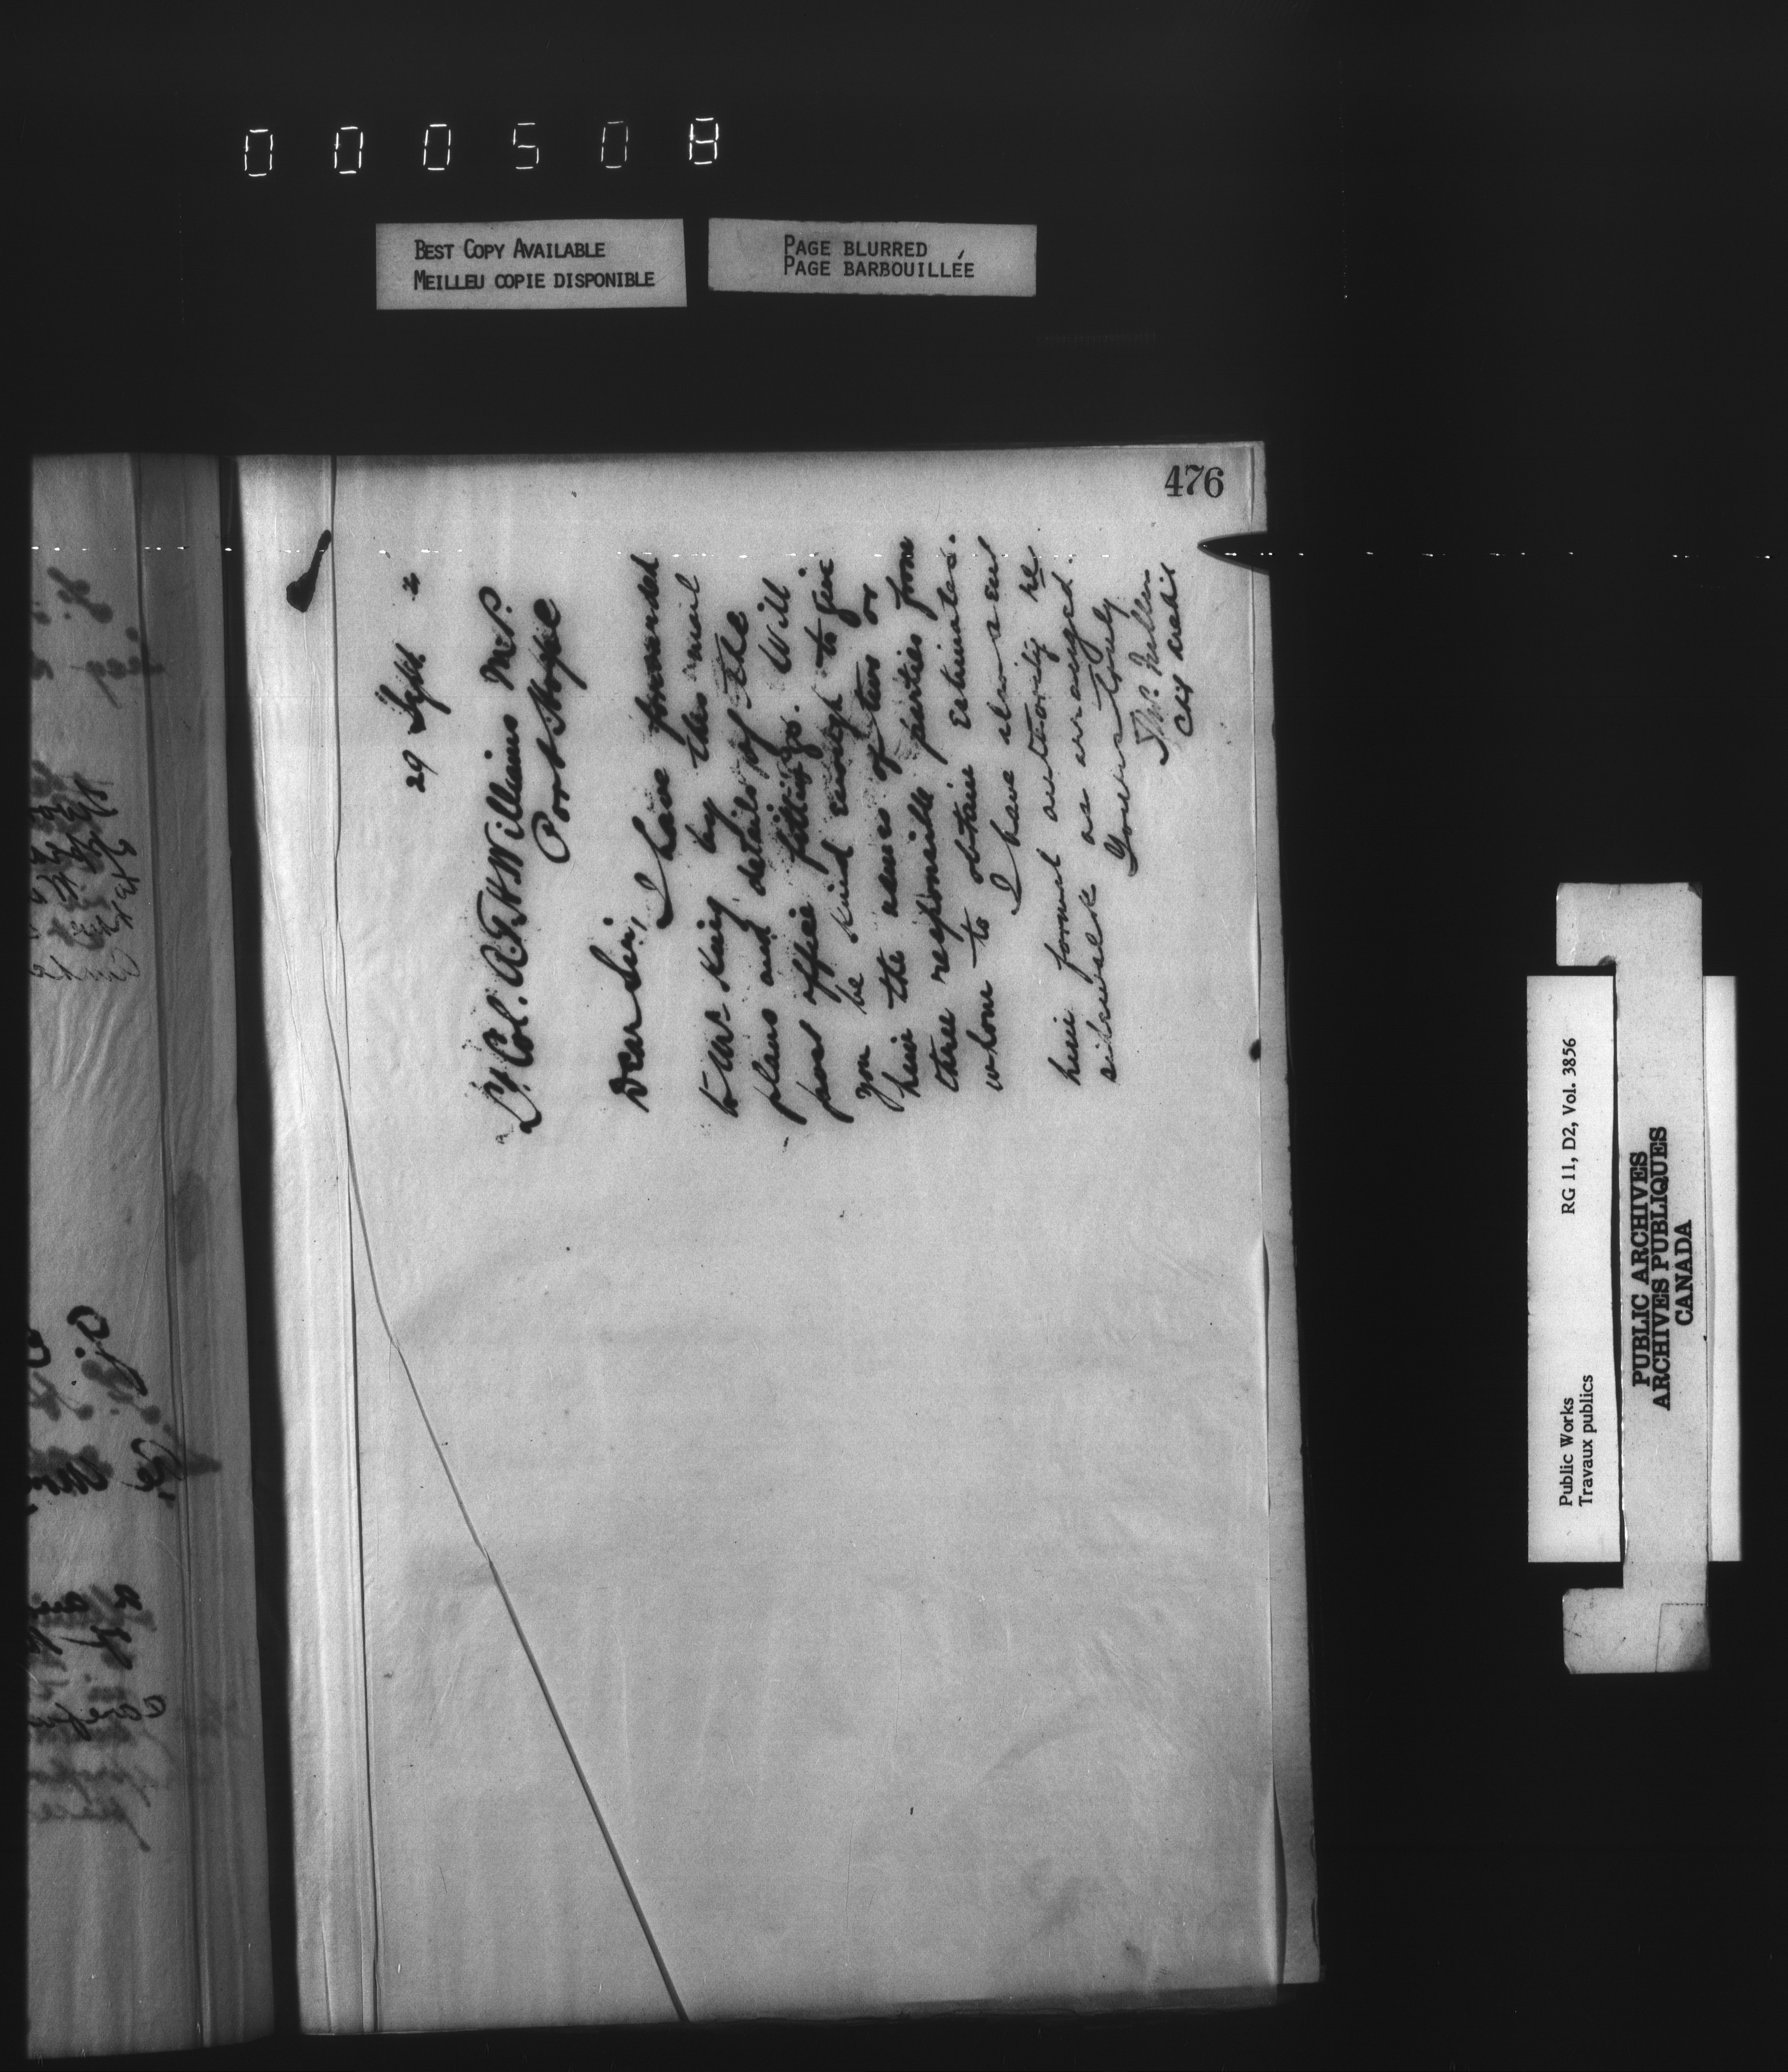 000508
BEST COPY AVAILABLE
MEILLEU COPIE DISPONIBLE
PAGE BLURRED
PAGE BARBOUILLÉE
476
29 Sept. 2
Lt. Col. A.T.H. Williams M.P.
Port Hope
Dear Sir,
I have forwarded
to Mr King by this mail
plans and details of the
post office fittings. Will
you be kind enough to give
him the names of two or
three responsible parties from
whom to obtain estimates.
I have also sent
him formal authority re
sidewalk as arranged.
Yours truly
Thos. Fuller
Ch Archt
Public Works
Travaux publics
RG 11, D2, Vol. 3856
PUBLIC ARCHIVES
ARCHIVES PUBLIQUES
CANADA